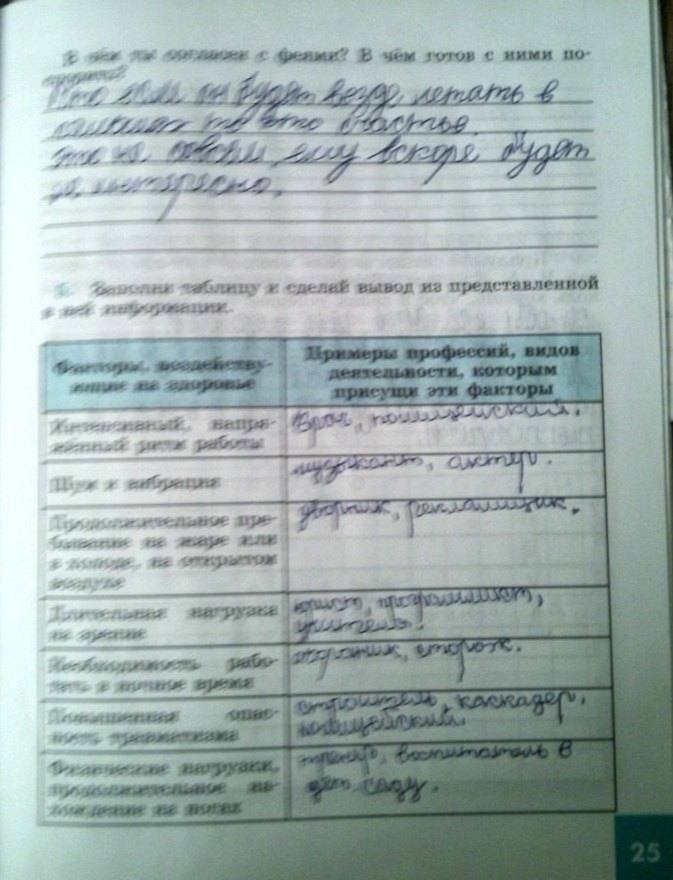 В чём ты согласен с феями? В чём готов с ними по-
что если он будет везде летать в
то это счастье.
это не совсем, ему вскоре будет
Заполни таблицу и сделай вывод из представленной
в ней информации.
Факторы, воздейству-
ющие на здоровье
Примеры профессий, видов
деятельности, которым
присущи эти факторы
Интенсивный, напря-
жённый ритм работы
Врач, полицейский.
Шум и вибрация
музыкант, актер.
Продолжительное пре-
бывание на жаре или
в холоде, на открытом
воздухе
дворник, рекламщик.
Длительная нагрузка
на зрение
программист,
учитель.
Необходимость рабо-
тать в ночное время
охранник, сторож.
Повышенная опас-
ность травматизма
строитель, каскадер,
полицейский.
Физические нагрузки,
продолжительное на-
хождение на ногах
тренер, воспитатель в
дет. саду.
25